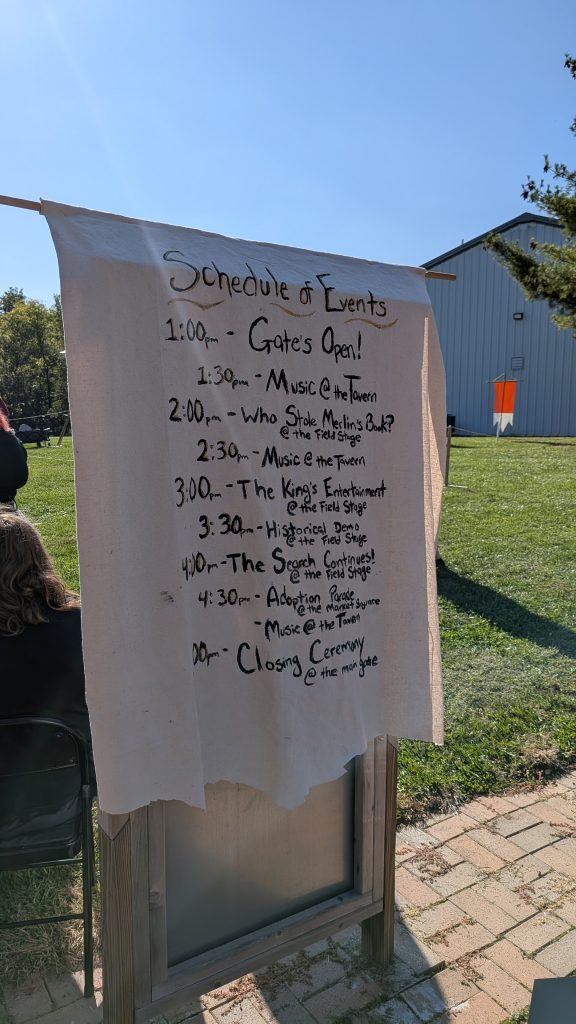 Schedule of Events
1:00pm - Gate's Open!
1:30pm - Music @ the Tavern
2:00pm - Who Stole Merlin's Book?
@ the Field Stage
2:30pm - Music @ the Tavern
3:00pm - The King's Entertainment
@ the Field Stage
3:30pm - Historical Demo
@ the Field Stage
4:00pm - The Search Continues!
@ the Field Stage
4:30pm - Adoption Parade
@ the Market Square
- Music @ the Tavern
00pm - Closing Ceremony
@ the main gate